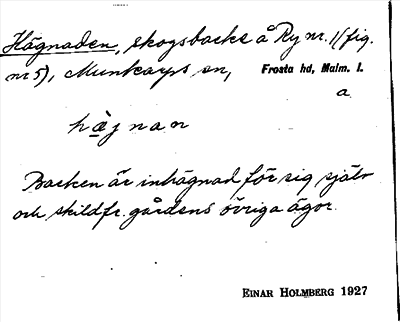 Hägnaden, skogsbacke å Ry nr. 1 (fig.
nr 5), Munkarps sn, Frosta hd, Malm. l.
a
hæ̀jnan
Backen är inhägnad för sig själv
och skild fr. gårdens övriga ägor.
EINAR HOLMBERG 1927